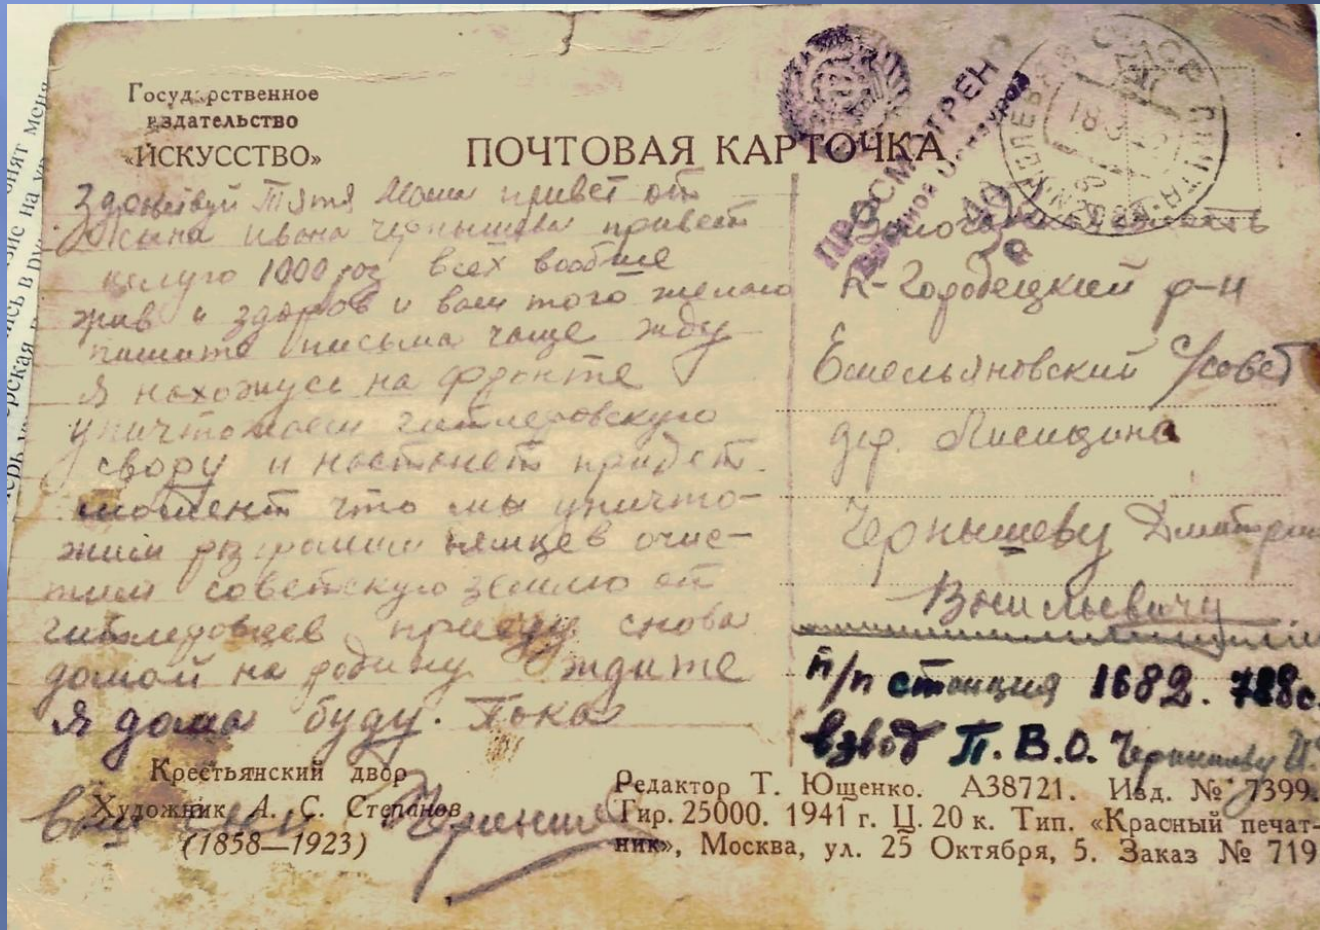 Государственное
издательство
«ИСКУССТВО»
ПОЧТОВАЯ КАРТОЧКА
ПРОСМОТРЕНО
Военной Цензурой
Здравствуй Тятя Мама привет от
сына Ивана Чернышева привет
целую 1000 раз всех вообще
жив и здоров и вам того желаю
пишите письма чаще жду
Я нахожусь на фронте
уничтожаем гитлеровскую
свору и настанет придет
момент что мы уничто-
жим разгромим немцев очис-
тим советскую землю от
гитлеровцев приеду снова
домой на родину ждите
Я дома буду. Пока
ваш сын Черныше
Вологодская
К-Городецкий р-н
Емельяновский с/совет
дер. Лисицина
Чернышеву Дмитрию
Васильевичу
п/п станция 1682. 788 с.
взвод П.В.О. Чернышеву И.
Крестьянский двор
Художник А. С. Степанов
(1858—1923)
Редактор Т. Ющенко. А38721. Изд. № 7399.
Тир. 25000. 1941 г. Ц. 20 к. Тип. «Красный печат-
ник», Москва, ул. 25 Октября, 5. Заказ № 719